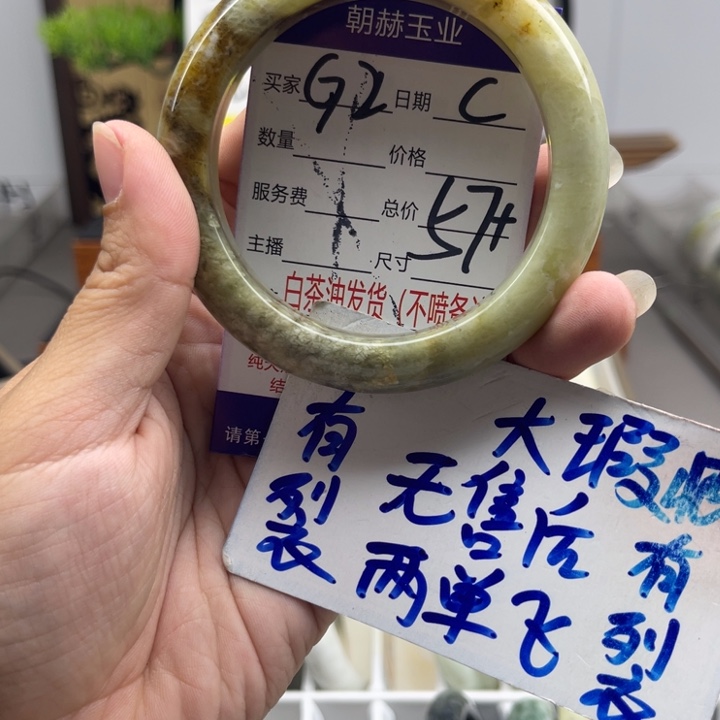 朝赫玉业
买家 G2 日期 C
数量 价格
服务费 总价 57#
主播 尺寸
白茶油发货（不喷
请第
有列表
大瑕
无售后
两单飞
有列表